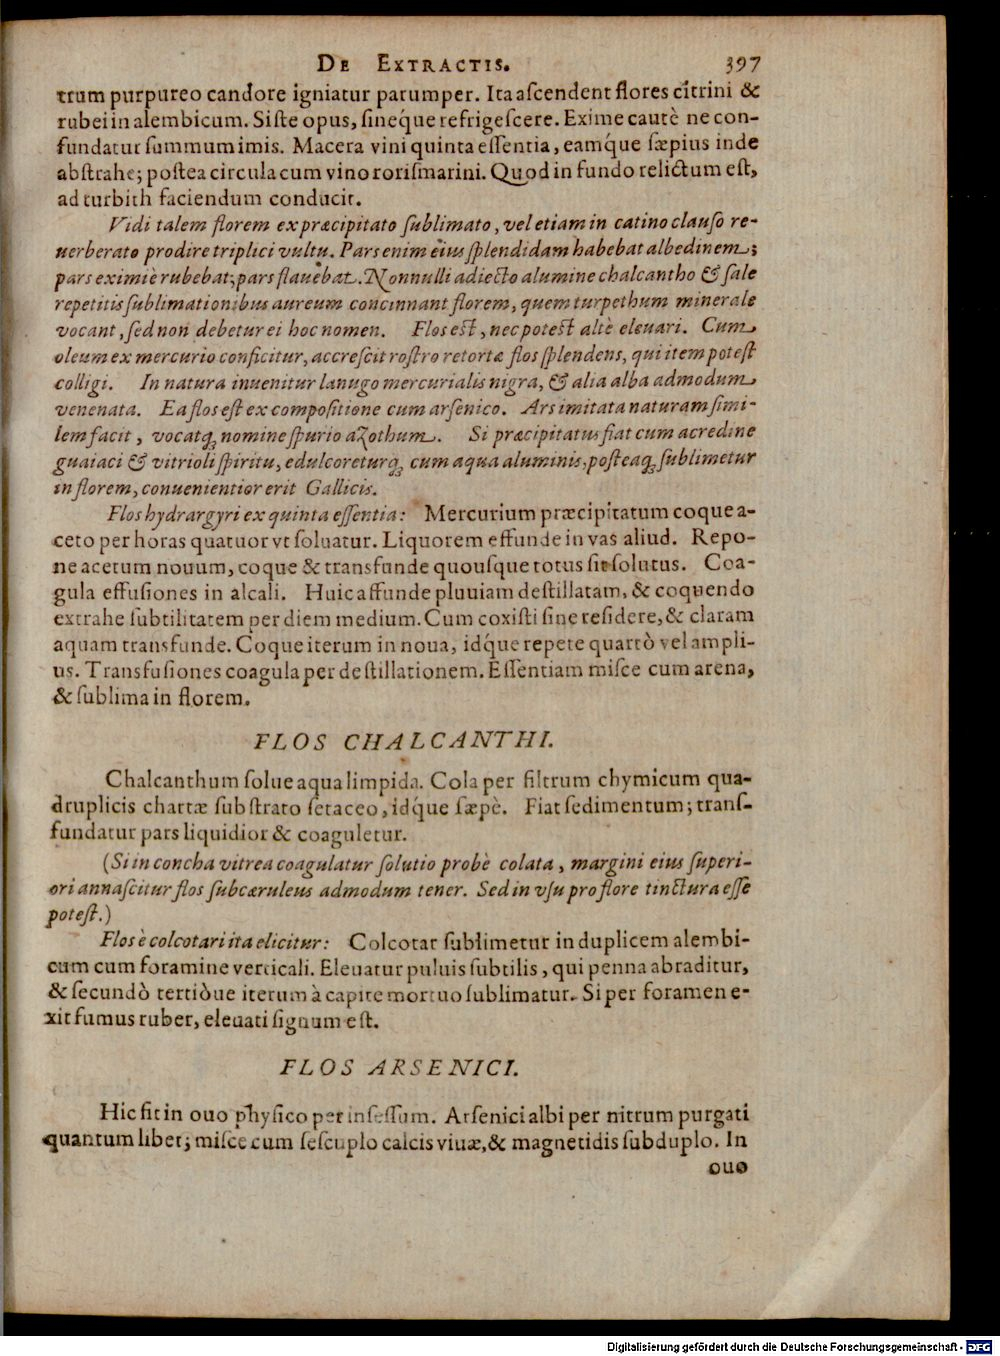 DE EXTRACTIS. 397
trum purpureo candore igniatur parumper. Ita ascendent flores citrini &
rubei in alembicum. Siste opus, sinéque refrigescere. Exime cautè ne con-
fundatur summum imis. Macera vini quinta essentia, eamq́ue sæpius inde
abstrahe; postea circula cum vino rorismarini. Quod in fundo relictum est,
ad turbith faciendum conducit.
Vidi talem florem ex præcipitato sublimato, vel etiam in catino clauso re-
uerberato prodire triplici vultu. Pars enim eius splendidam habebat albedinem;
pars eximiè rubebat; pars flauebat. Nonnulli adiecto alumine chalcantho & sale
repetitis sublimationibus aureum concinnant florem, quem turpethum minerale
vocant, sed non debetur ei hoc nomen. Flos est, nec potest altè eleuari. Cum
oleum ex mercurio conficitur, accrescit rostro retortæ flos splendens, qui item potest
colligi. In natura inuenitur lanugo mercurialis nigra, & alia alba admodum
venenata. Ea flos est ex compositione cum arsenico. Ars imitata naturam simi-
lem facit, vocatq; nomine spurio azothum. Si præcipitatus fiat cum acredine
guaiaci & vitrioli spiritu, edulcoreturq; cum aqua aluminis, posteaq; sublimetur
in florem, conuenientior erit Gallicis.
Flos hydrargyri ex quinta essentia: Mercurium præcipitatum coque a-
ceto per horas quatuor vt soluatur. Liquorem effunde in vas aliud. Repo-
ne acetum nouum, coque & transfunde quousque totus sit solutus. Coa-
gula effusiones in alcali. Huic affunde pluuiam destillatam, & coquendo
extrahe subtilitatem per diem medium. Cum coxisti sine residere, & claram
aquam transfunde. Coque iterum in noua, idq́ue repete quartò vel ampli-
us. Transfusiones coagula per destillationem. Essentiam misce cum arena,
& sublima in florem.
FLOS CHALCANTHI.
Chalcanthum solue aqua limpida. Cola per filtrum chymicum qua-
druplicis chartæ substrato setaceo, idq́ue sæpè. Fiat sedimentum; trans-
fundatur pars liquidior & coaguletur.
(Si in concha vitrea coagulatur solutio probè colata, margini eius superi-
ori annascitur flos subcæruleus admodum tener. Sed in vsu pro flore tinctura esse
potest.)
Flos è colcotari ita elicitur: Colcotar sublimetur in duplicem alembi-
cum cum foramine verticali. Eleuatur puluis subtilis, qui penna abraditur,
& secundò tertiòue iterum à capite mortuo sublimatur. Si per foramen e-
xit fumus ruber, eleuati signum est.
FLOS ARSENICI.
Hic fit in ouo physico per insessum. Arsenici albi per nitrum purgati
quantum libet; misce cum sescuplo calcis viuæ, & magnetidis subduplo. In
ouo
Digitalisierung gefördert durch die Deutsche Forschungsgemeinschaft - DFG